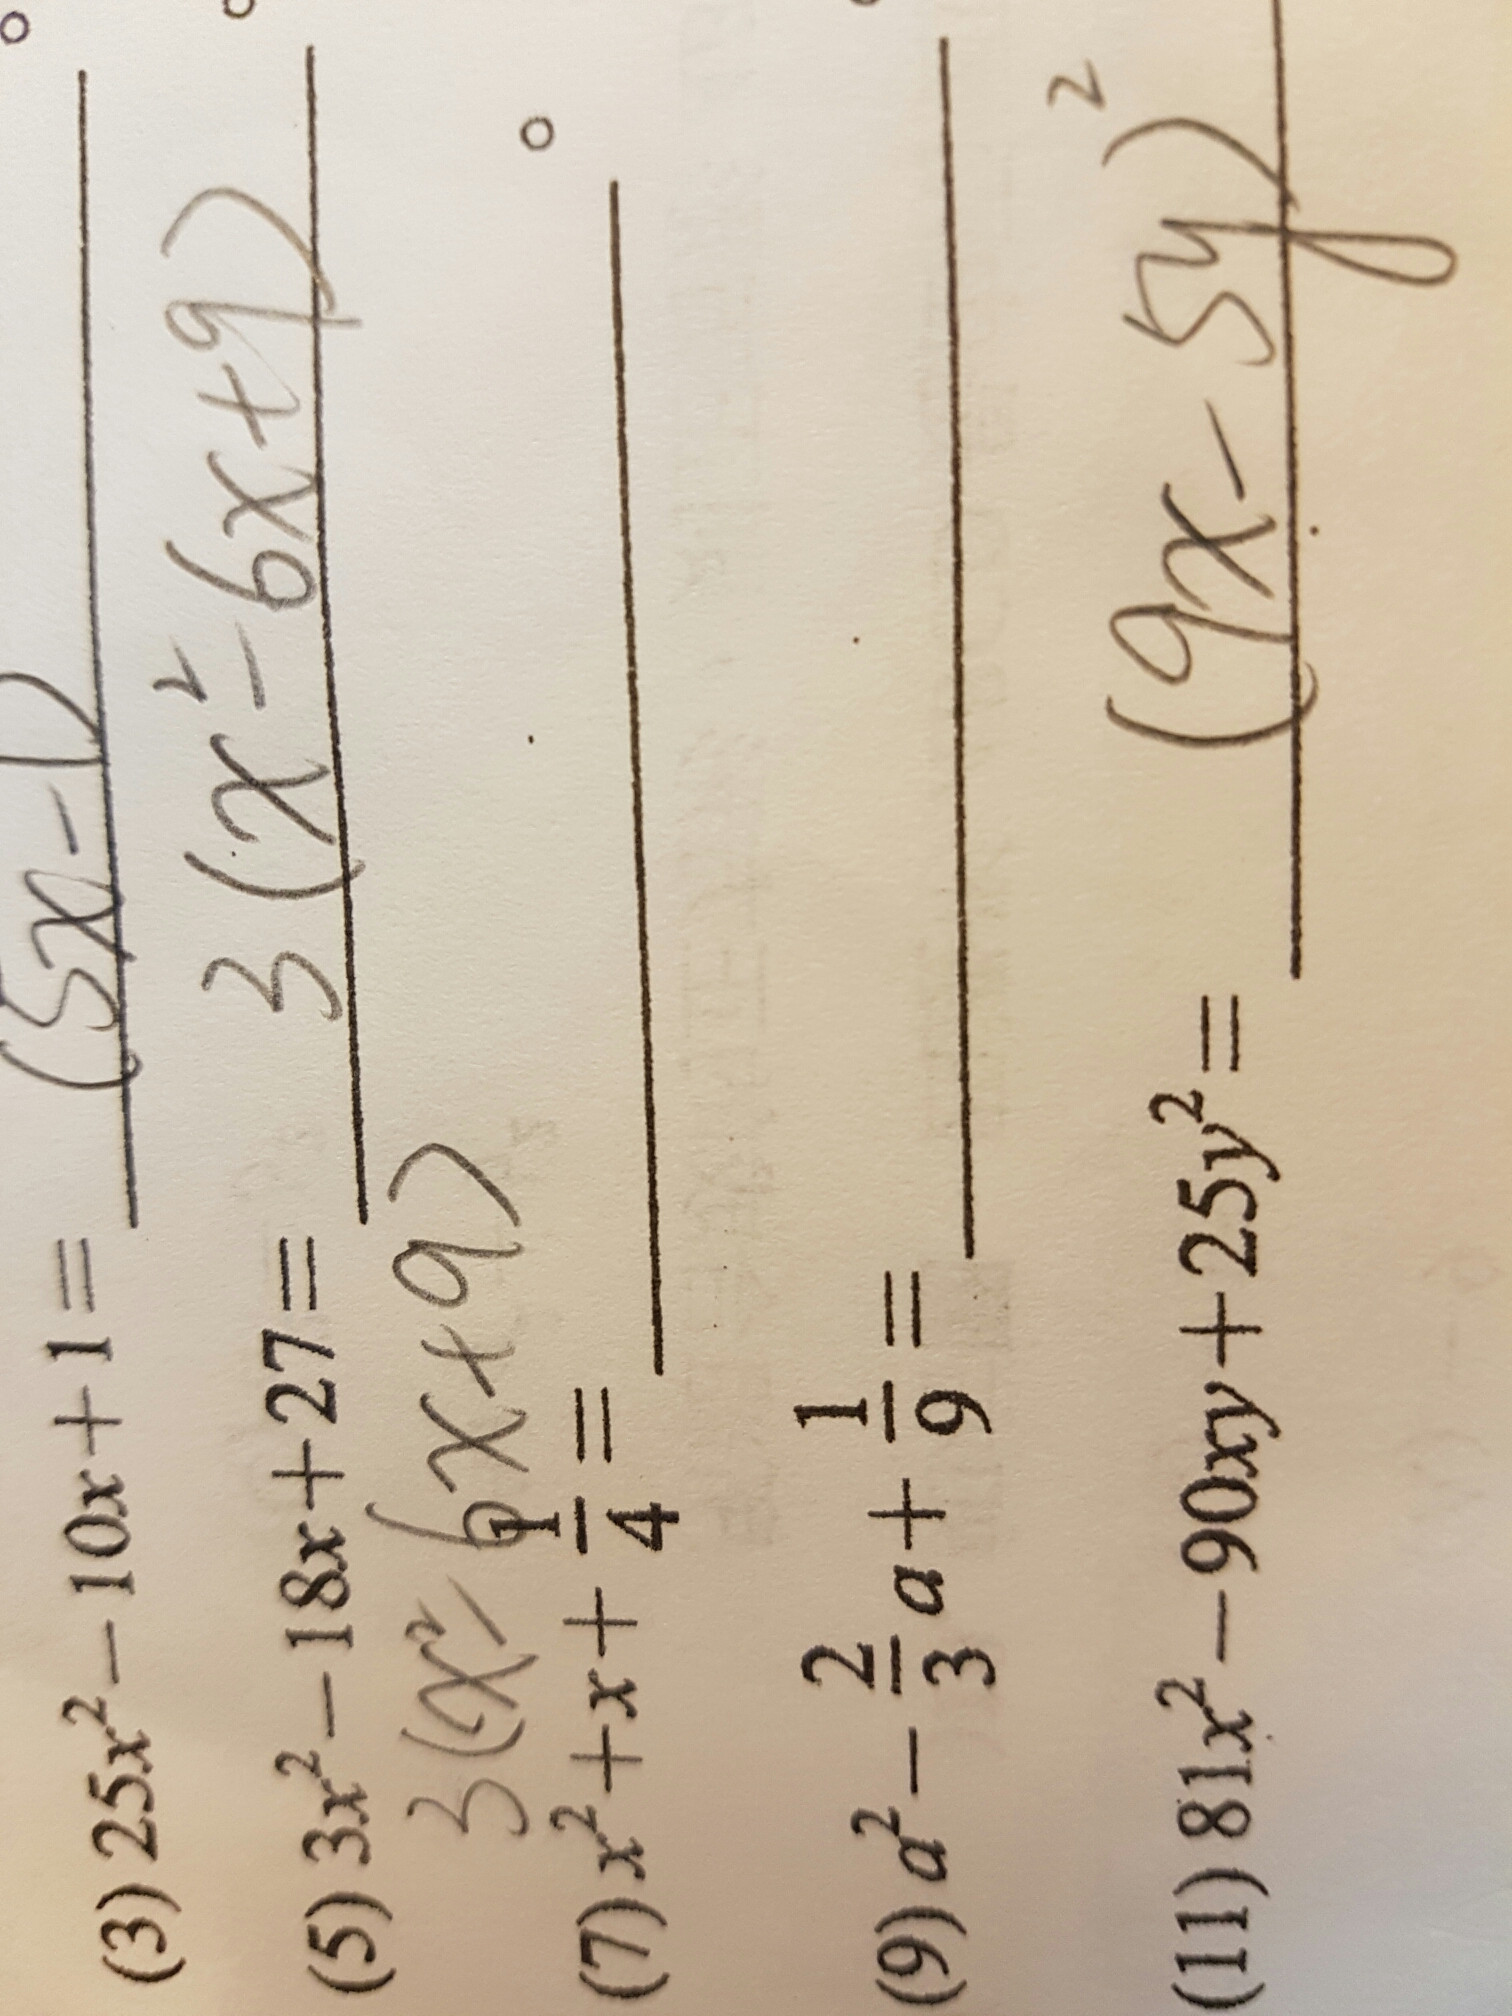 (3) 25x² − 10x + 1 = (5x − 1) 。
(5) 3x² − 18x + 27 = 3(x² − 6x + 9) 。
3(x² − 6x + 9)
(7) x² + x + 1/4 = 。
(9) a² − 2/3 a + 1/9 = 。
(11) 81x² − 90xy + 25y² = (9x − 5y)²